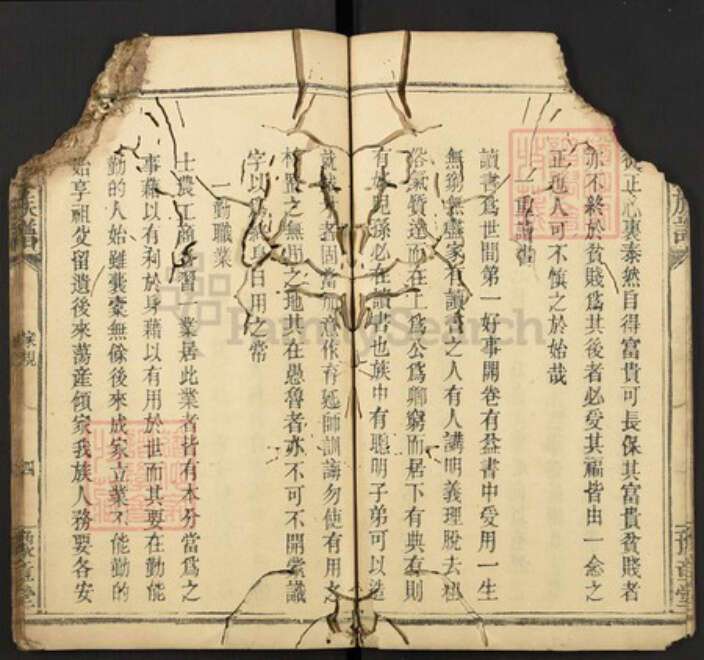 從正心裏泰然自得富貴可長保其富貴貧賤者
亦不終於貧賤爲其後者必受其福皆由一念之
正進人可不慎之於始哉
一重讀書
讀書爲世間第一好事開卷有益書中受用一生
無窮無盡家有讀書之人有人講明義理脫去粗
俗氣質達而在上爲公爲卿窮而居下有典有則
有好兒孫必在讀書也族中有聰明子弟可以造
就 者固當加意作育延師訓誨勿使有用之
材置之無用之地其在愚魯者亦不可不開蒙識
字以爲終身日用之常
一勤職業
士農工商各習一業居此業者皆有本分當爲之
事藉以有利於身藉以有用於世而其要在勤能
勤的人始雖囊橐無餘後來成家立業不能勤的
始享祖父留遺後來蕩產傾家我族人務要各安
族譜
家規
四
族譜
FamilySearch